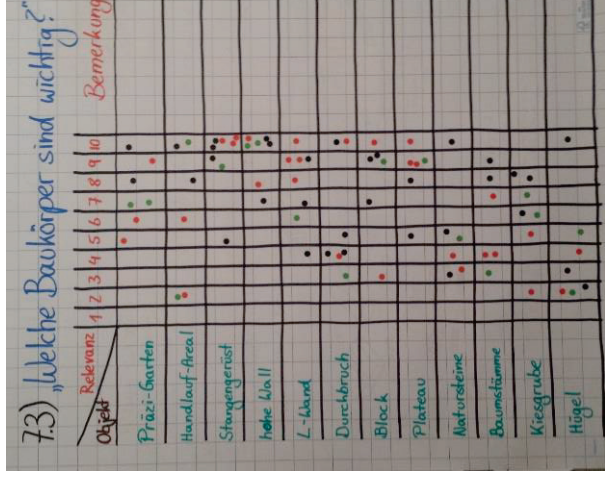 7.3) „Welche Baukörper sind wichtig?"
Objekt Relevanz 1 2 3 4 5 6 7 8 9 10 Bemerkung
Präzi-Garten
Handlauf-Areal
Stangengerüst
hohe Wall
L-Wand
Durchbruch
Block
Plateau
Natursteine
Baumstämme
Kiesgrube
Hügel